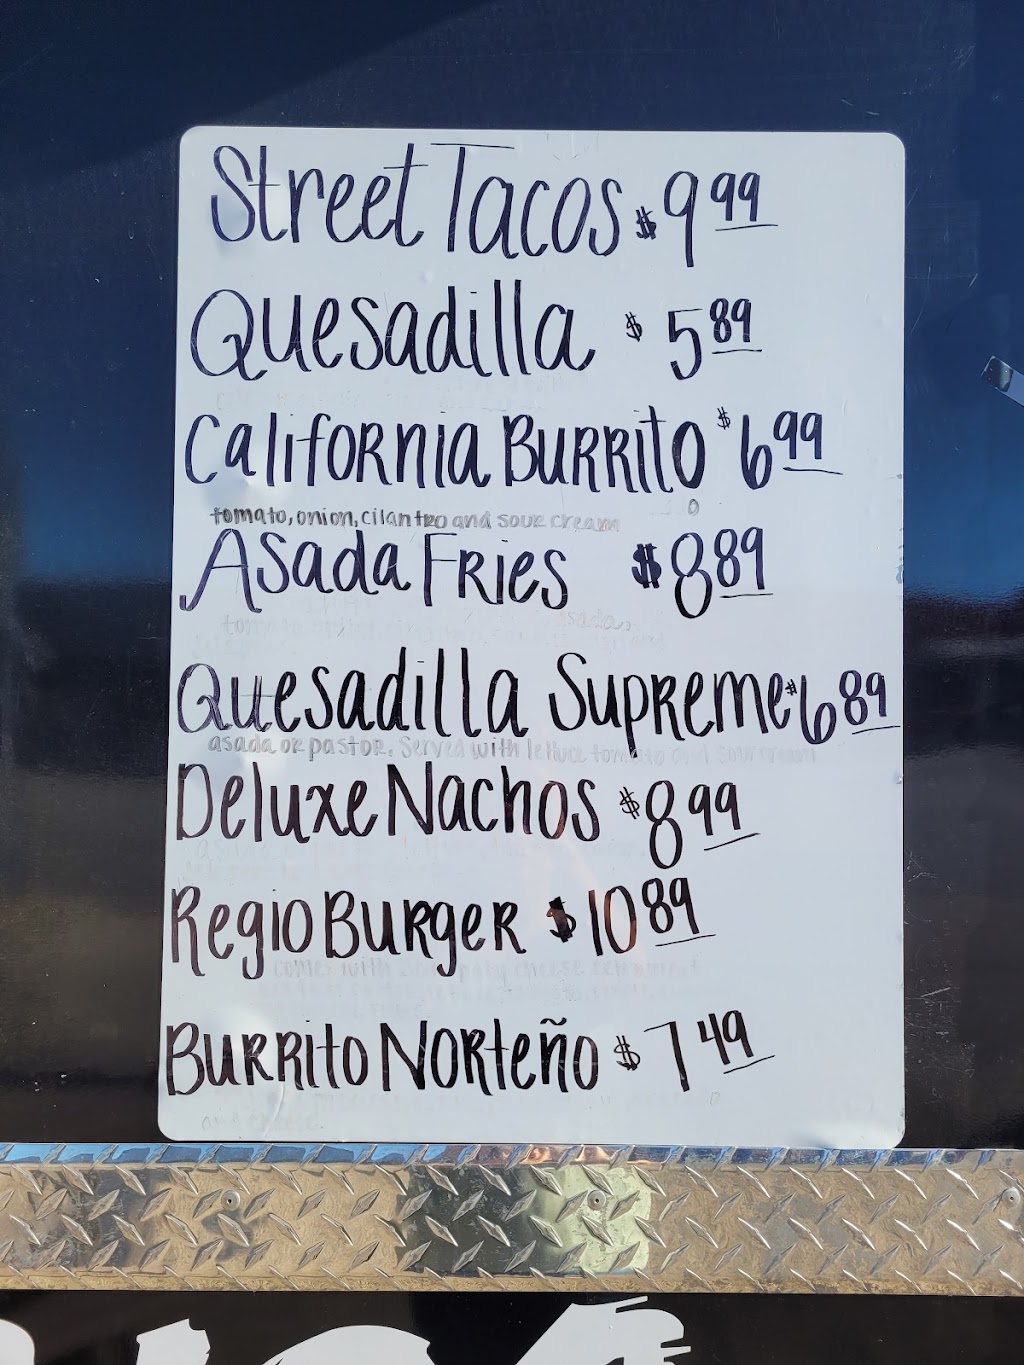 Street Tacos $9.99
Quesadilla $5.89
California Burrito $6.99
tomato, onion, cilantro and sour cream
Asada Fries $8.89
Quesadilla Supreme $6.89
asada or pastor. Served with lettuce tomato and sour cream
Deluxe Nachos $8.99
Regio Burger $10.89
comes with
Burrito Norteño $7.49
and cheese.